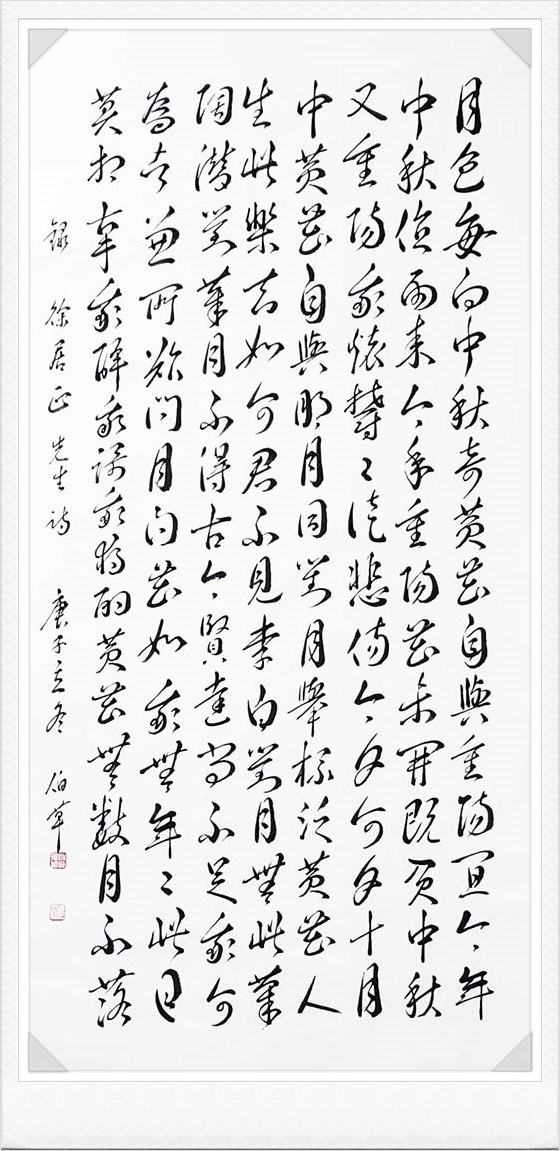 月色每向中秋奇黃花自與重陽宜今年
中秋值雨來今年重陽花未開既負中秋
又重陽我懷鬱々徒悲傷今夕何夕十月
中黃花自與明月同對月舉杯泛黃花人
生此樂如何君不見李白對月無此菊
陶潛對菊月不得古今賢達尚不足我何
為者兼所欲問月問花如我無年々此日
莫相辜我醉我謌我猶酌黃花無數月不落
錄 徐居正先生詩 庚子立冬 伯草